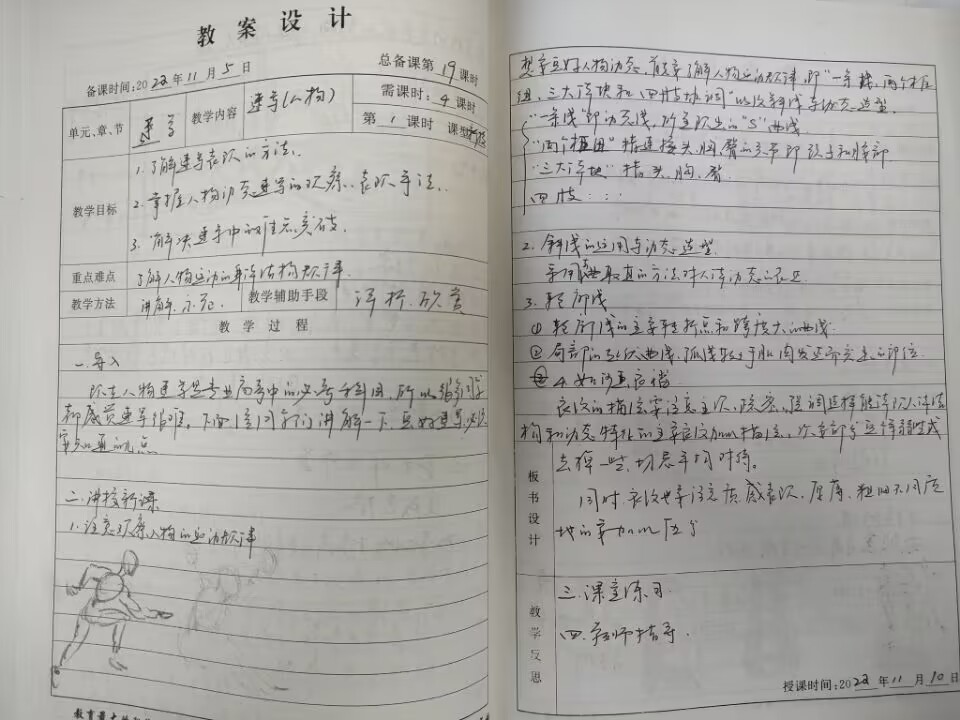 教案设计
备课时间:2022年11月5日 总备课第19课时
单元、章、节 速写 教学内容 速写(人物) 需课时:4课时
第1课时 课型
教学目标
1.了解速写表现的方法.
2.掌握人物动态速写的观察、表现手法.
3.解决速写中的难点突破.
重点难点 了解人物运动的身体结构规律
教学方法 讲解.示范. 教学辅助手段 评析.欣赏
教学过程
一.导入
人物速写是专业高考中的必考科目,所以很多同学
都感觉速写很难.下面给同学们讲解一下画好速写必须
二.讲授新课
1.注意观察人物的运动规律
教育
想要画好人物动态,首先了解人物运动规律,即“一条线、两个框
三大体块和四肢
“一条线”即动态线,对主观出的“S”曲线
指连接头、胸、臀的关节即颈部和腰部
“三大体块”指头、胸、臀.
四肢:
2.斜线的运用与动态造型
的方法对人体动态
3.轮廓线
①轮廓线的主要转折点和跨度大的曲线.
②局部的起伏曲线,弧线处于肌肉发达而突出的部位.
4.如何画衣褶
衣纹的描绘要注意主次、疏密,强调选择能体现人体结
构和动态特征的主要衣纹加以描绘,次要部分应
去掉一些,切忌平均对待。
同时,衣纹也要注意质感表现,厚薄、粗细不同质
地的要加以区分
板书设计
三.课堂练习
教学反思
四.教师指导.
授课时间:2022年11月10日